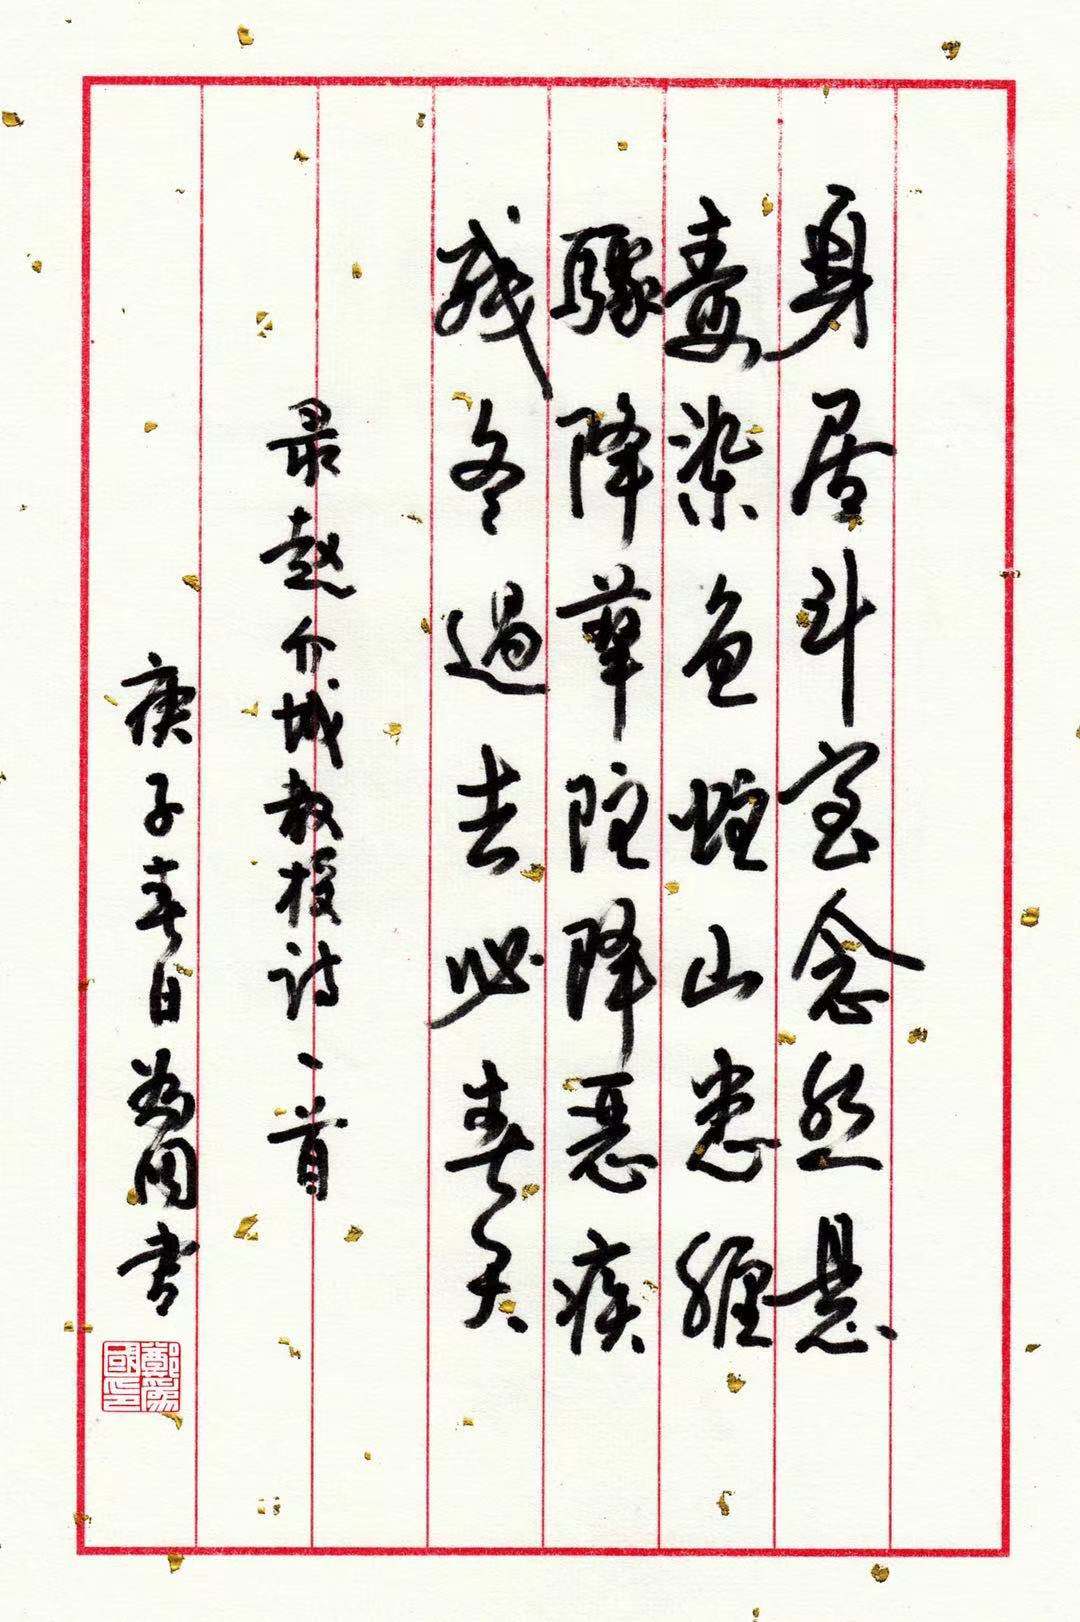 身居斗室念丝悬
毒染龟蛇山患缠
骤降华陀降恶疾
残冬过去必春天
录赵介城教授诗一首
庚子春日为国书
鄭為國印